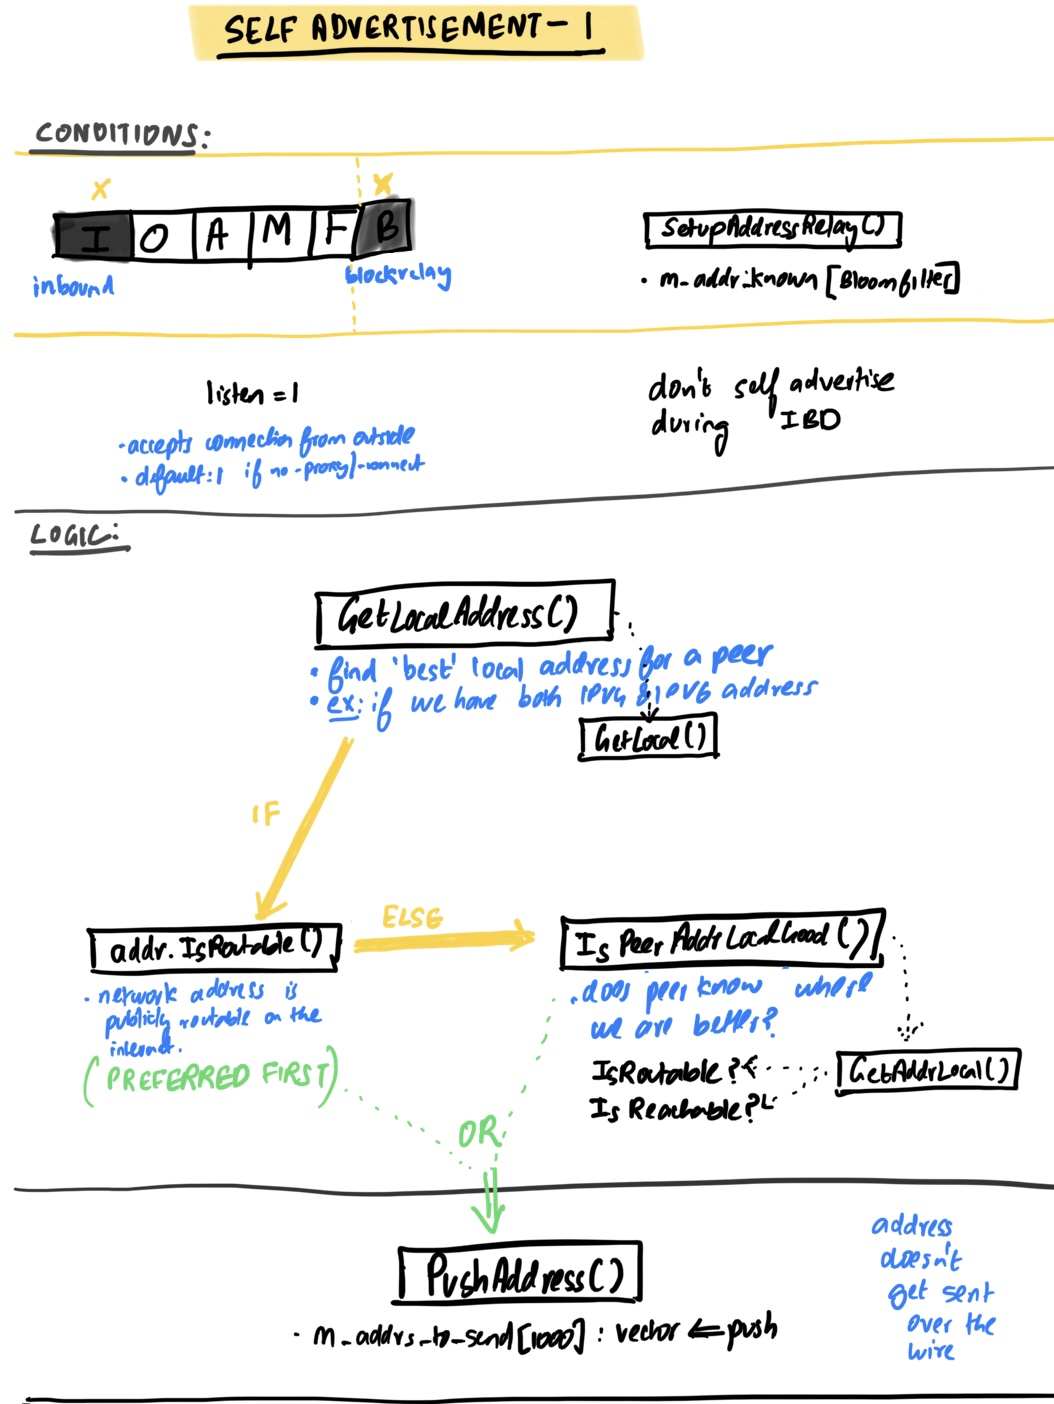 SELF ADVERTISEMENT - 1
CONDITIONS:
x x
I O A M F B
inbound blockrelay
SetupAddressRelay()
• m_addr_known [Bloomfilter]
listen = 1
• accepts connection from outside
• default: 1 if no -proxy/-connect
don't self advertise
during IBD
LOGIC:
GetLocalAddress()
• find 'best' local address for a peer
• ex: if we have both IPV4 & IPV6 address
GetLocal()
IF
addr.IsRoutable()
ELSE
IsPeerAddrLocalGood()
• network address is
publicly routable on the
internet.
(PREFERRED FIRST)
• does peer know where
we are better?
IsRoutable?
IsReachable?
GetAddrLocal()
OR
PushAddress()
• m_addrs_to_send[1000] : vector ⇐ push
address
doesn't
get sent
over the
wire